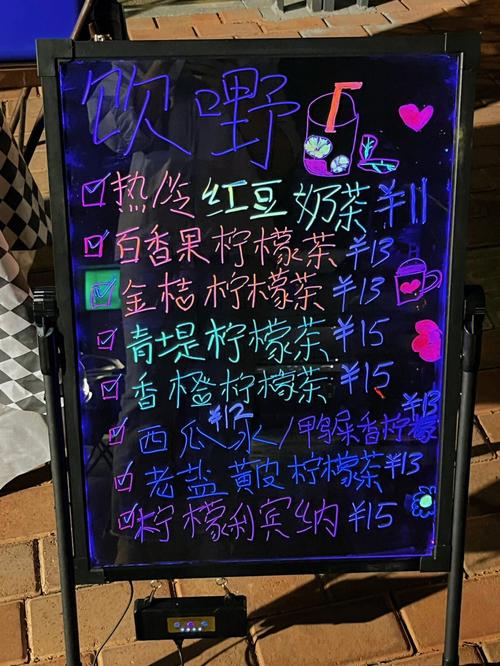 饮嘢
热冷红豆奶茶¥11
百香果柠檬茶¥13
金桔柠檬茶¥13
青堤柠檬茶¥15
香橙柠檬茶¥15
西瓜冰¥12/鸭屎香柠檬¥13
老盐黄皮柠檬茶¥13
柠檬利宾纳¥15